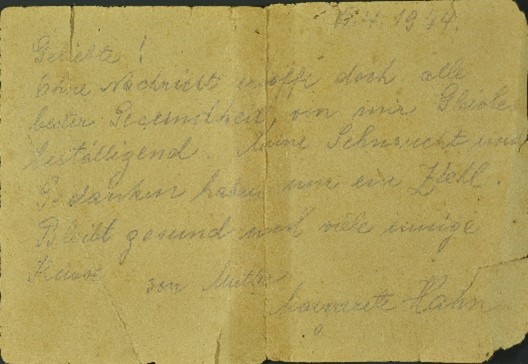 1944.
Geliebte !
Ohne Nachricht doch alle
bester Gesundheit, von mir Gleiche
Meine Sehnsucht und
Gedanken haben nur ein Ziehl.
Bleibt gesund und viele innige
Küsse von Mutter
Hahn